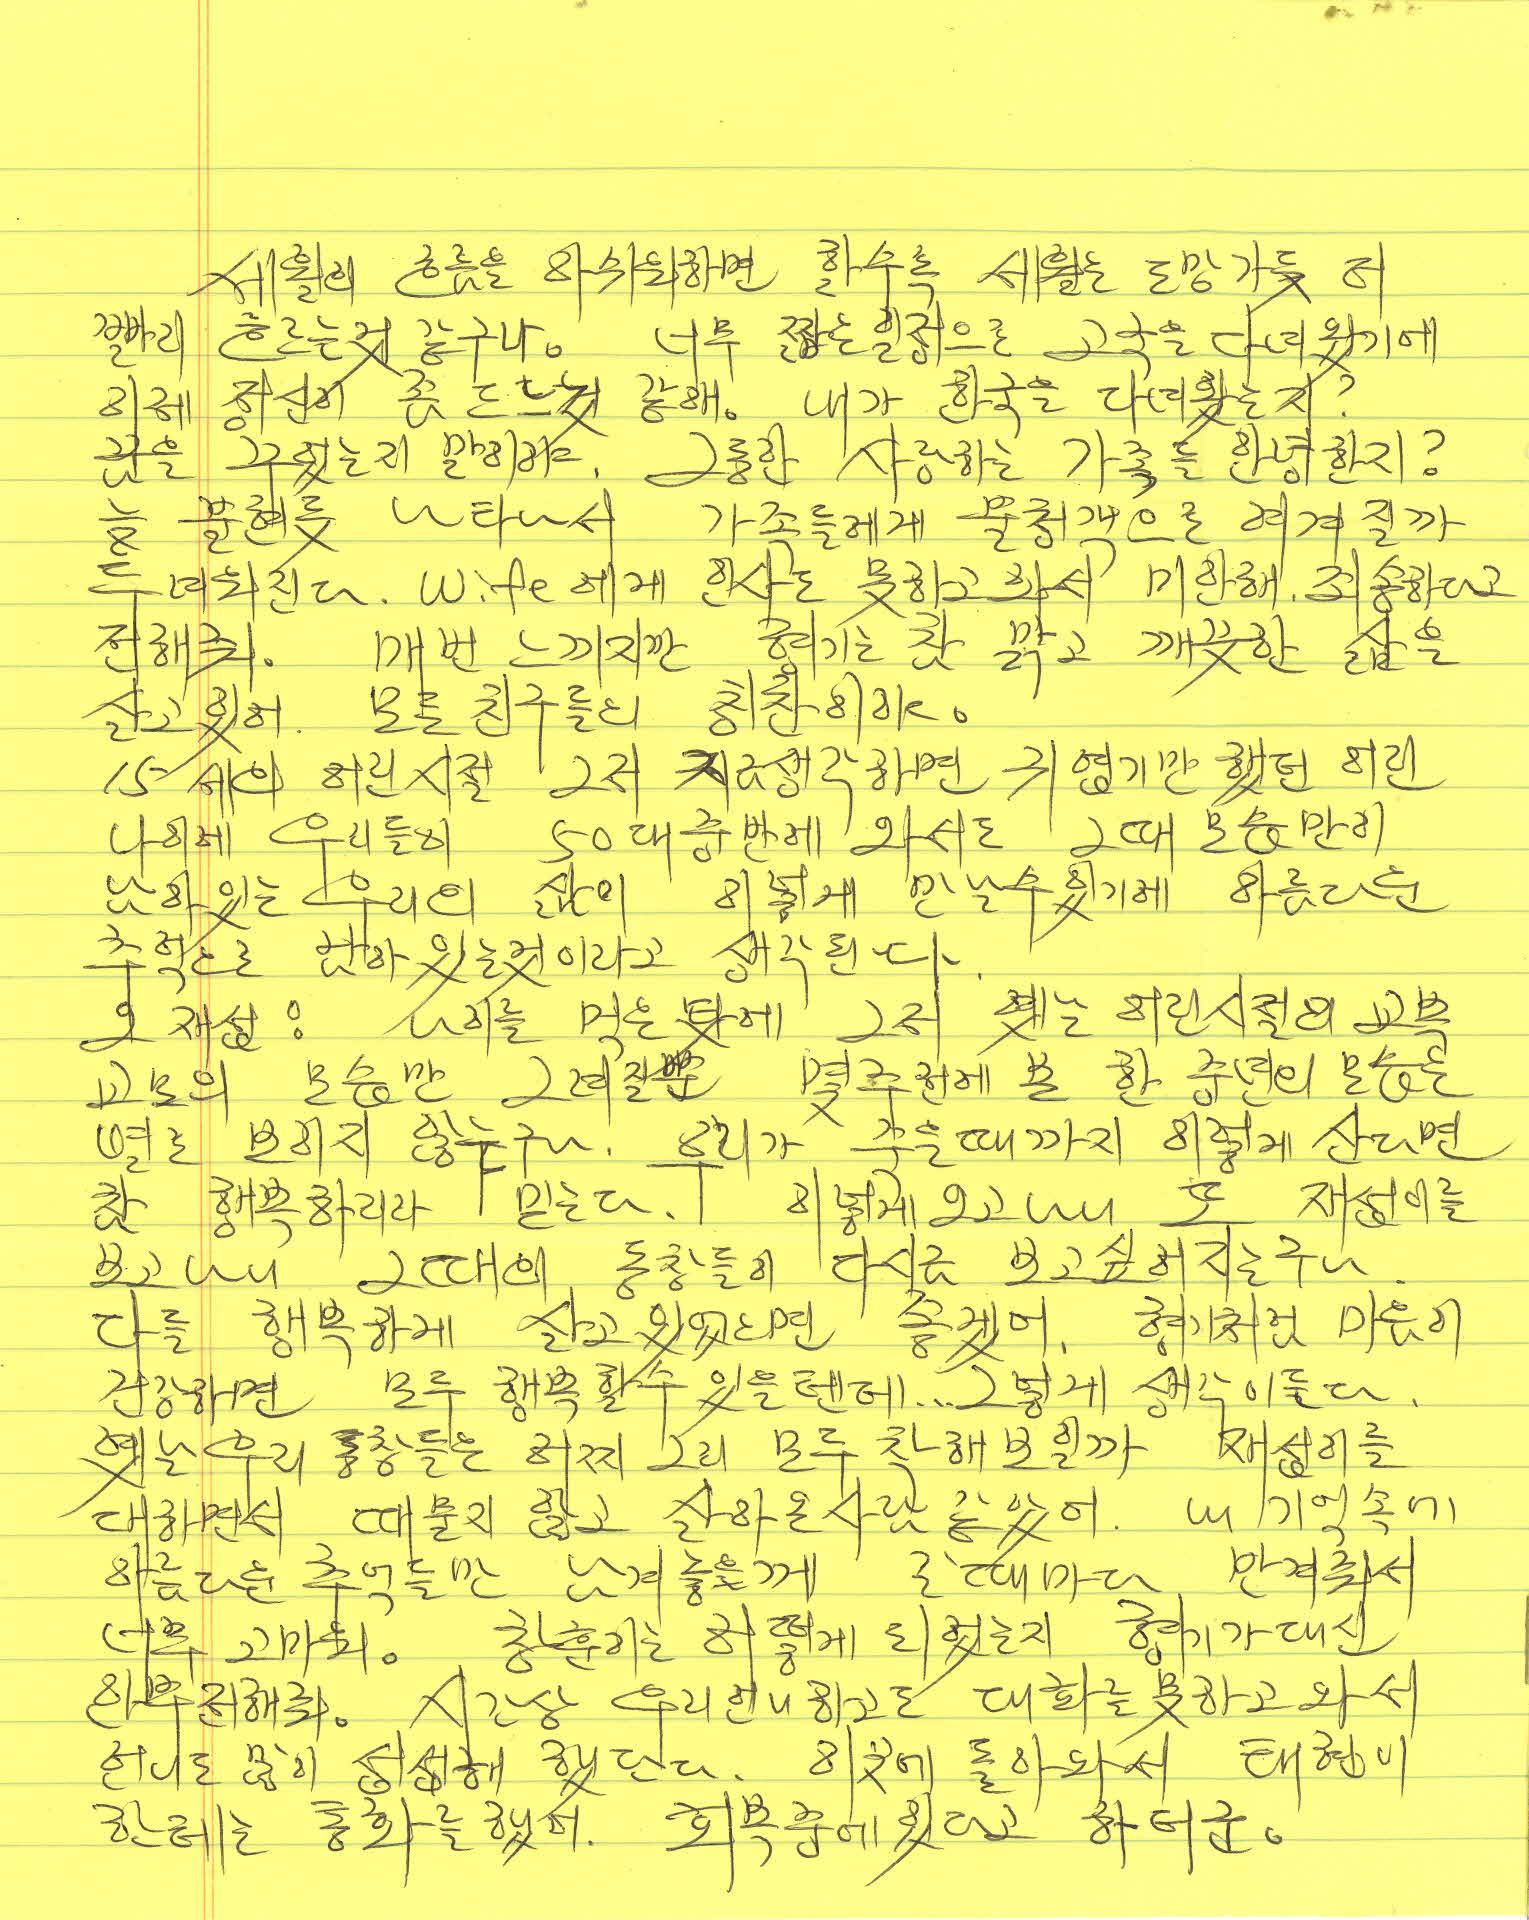 세월의 흐름을 아쉬워하면 할수록 세월은 도망가듯 더
빨리 흐르는것 같구나. 너무 짧은일정으로 고국을 다녀왔기에
이제 정신이 좀 드는것 같애. 내가 한국을 다녀왔는지?
꿈을 꾸었는지 말이야. 그동안 사랑하는 가족들 안녕한지?
늘 불현듯 나타나서 가족들에게 불청객으로 여겨질까
두려워진다. Wife에게 인사도 못하고 와서 미안해. 죄송하다고
전해줘. 매번 느끼지만 형기는 참 맑고 깨끗한 삶을
살고있어. 모든 친구들의 칭찬이야.
15세의 어린시절 그저 지금생각하면 귀엽기만했던 어린
나이에 우리들이 50대중반에 와서도 그때 모습만이
남아있는 우리의 삶이 이렇게 만날수있기에 아름다운
추억으로 남아있는것이라고 생각된다.
오 재섭: 나이를 먹은탓에 그저 옛날 어린시절의 교복
교모의 모습만 그려질뿐 몇주전에 본 한 중년의 모습은
별로 보이지 않는구나. 우리가 죽을때까지 이렇게 산다면
참 행복하리라 믿는다. 이렇게오고나니 또 재섭이를
보고나니 그때의 동창들이 다시금 보고싶어지는구나.
다들 행복하게 살고있었으면 좋겠어. 형기처럼 마음이
건강하면 모두 행복할수있을텐데...그렇게 생각이든다.
옛날우리 동창들은 어찌 그리 모두 착해보일까 재섭이를
대하면서 때묻지 않고 살아온사람같았어. 내 기억속에
아름다운 추억들만 남겨놓을께 갈때마다 반겨줘서
너무 고마워. 창훈이는 어떻게 되었는지 형기가대신
안부전해줘. 시간상 우리언니하고도 대화를 못하고 와서
언니도 많이 섭섭해 했단다. 이곳에 돌아와서 태현이
한테는 통화를했어. 회복중에있다고 하더군.